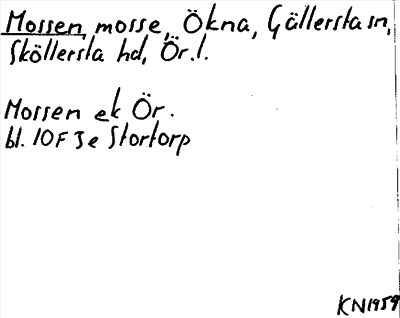 Mossen, mosse, Ökna, Gällersta sn,
Sköllersta hd, Ör.l.
Mossen ek Ör.
bl. 10F 3e Stortorp
KN1959